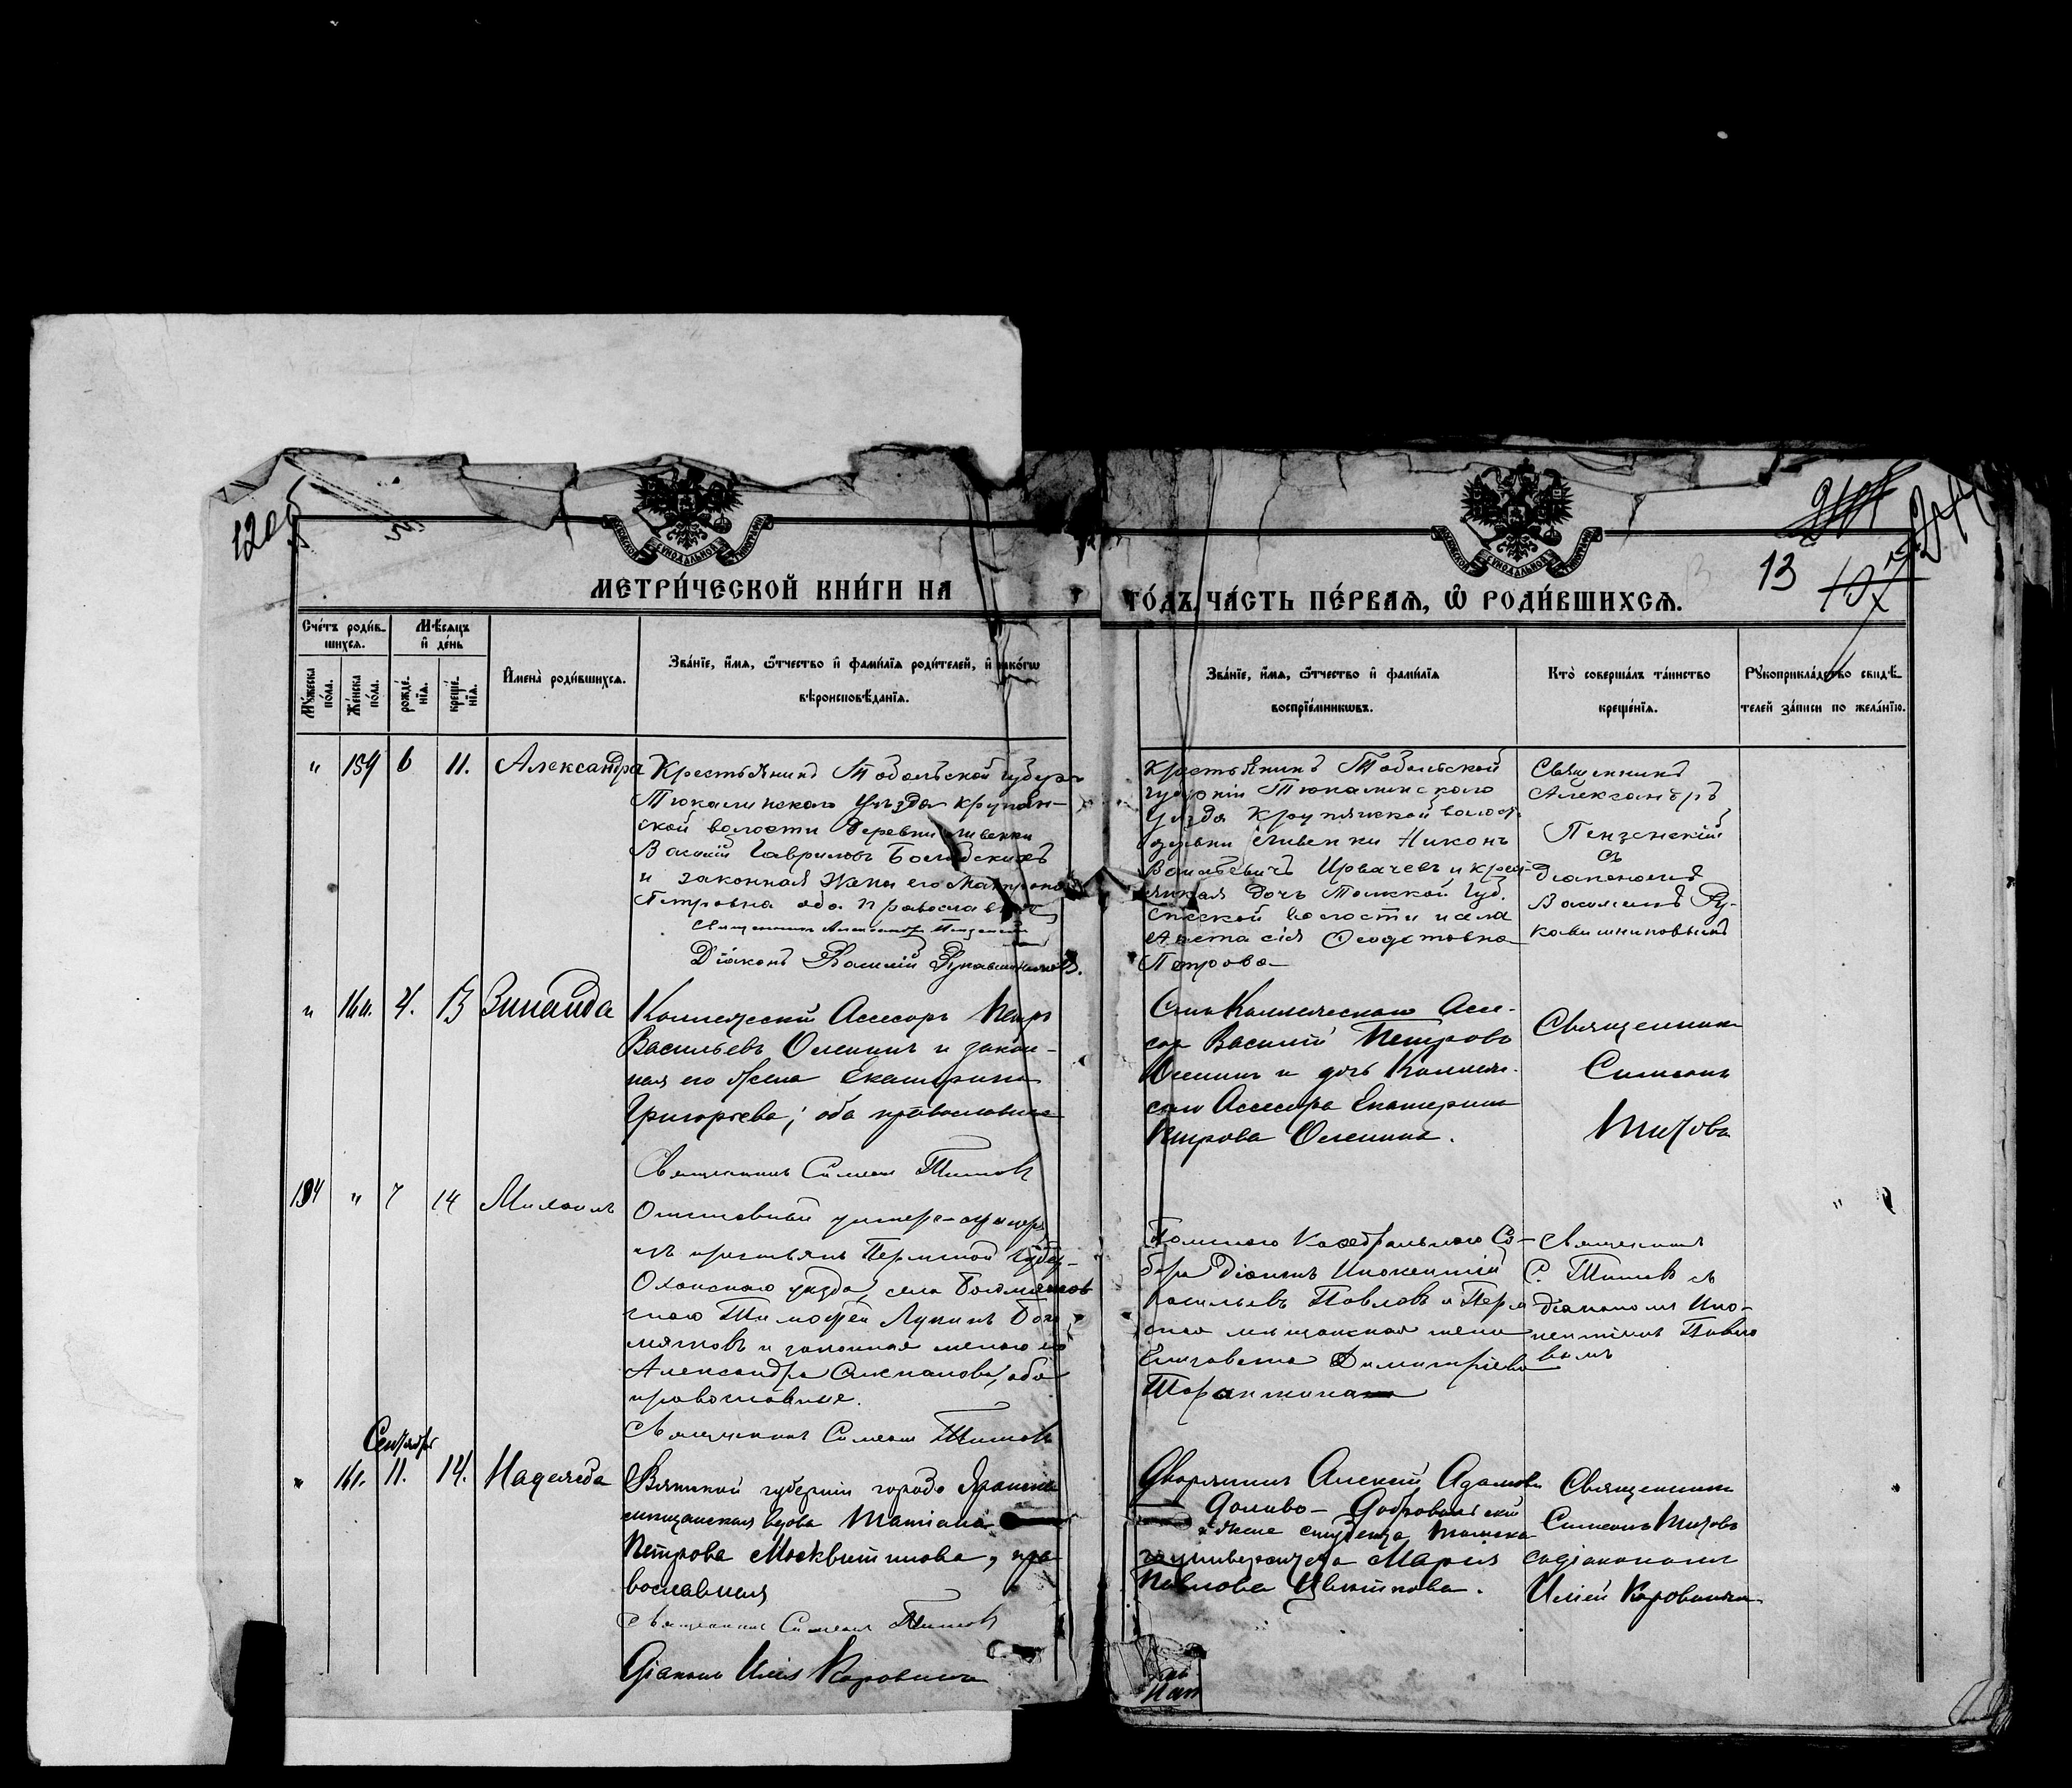 1205
13
МЕТРИ́ЧЕСКОЙ КНИ́ГИ НА
ГО́ДЪ, ЧА́СТЬ ПЕ́РВАѦ, Ѿ РОДИ́ВШИХСѦ.
Сче́тъ роди́в-
шихсѧ.
Мѣ́сѧцъ
и҆ де́нь
Мꙋ́жеска
по́ла.
Же́нска
по́ла.
рожде́-
нїѧ.
креще́-
нїѧ.
И҆мена̀ роди́вшихсѧ.
Зва́нїе, и҆́мѧ, ѻ҆́тчество и҆ фами́лїѧ роди́телей, и҆ како́гѡ
вѣроисповѣ́данїѧ.
Зва́нїе, и҆́мѧ, ѻ҆́тчество и҆ фами́лїѧ
воспрїе́мникѡвъ.
Кто̀ соверша́лъ та́инство
креще́нїѧ.
Рꙋкоприкла́дство свидѣ́-
телей за́писи по жела́нїю.
" 159 6 11. Александра
Крестьянинъ Тобольской губер-
Тюкалинскаго уѣзда Крупян-
ской волости деревни
Василій Гавриловъ
и законная жена его Матрона
Петровна оба православные
Священникъ Александръ Пензенскій
Діаконъ Василій Рукавишниковъ.
Крестьянинъ Тобольской
губерніи Тюкалинскаго
уѣзда Крупянской волост.
деревни Никонъ
Васильевичъ и крест-
янская дочь Томской губ.
Спасской волости и села
Анастасія Ѳедотовна
Петрова
Священникъ
Александръ
Пензенскій
съ
Діакономъ
Василіемъ Ру-
кавишниковымъ
" 160. 4. 13 Зинаида
Коллежскій Ассесоръ Петръ
Васильевъ Оленинъ и закон-
ная его жена Екатерина
Григорьева; оба православные
Священникъ Симеонъ Титовъ
Сынъ Коллежскаго Ассе-
сора Василій Петровъ
Оленинъ и дочь Коллеж-
скаго Ассесора Екатерина
Петрова Оленина.
Священникъ
Симеонъ
Титовъ
194 " 7 14 Михаилъ
Отставный унтеръ-офицеръ
изъ крестьянъ Пермской губер-
Оханскаго уѣзда, села
Тимофей Лукинъ Бог
мятковъ и законная жена его
Александра Степанова, оба
православные.
Священникъ Симеонъ Титовъ
Томскаго Каѳедральнаго Со-
бора Діаконъ Инокентій
Васильевъ Павловъ и Перм
ская мѣщанская жена
Елизавета Димитріева
Священникъ
С. Титовъ съ
діакономъ Ино-
кентіемъ Павло
вымъ
Сентября
" 161. 11. 14. Надежда
Вятской губерніи города Яранска
мѣщанская вдова Татіана
Петрова Москвитинова, пра-
вославная
Священникъ Симеонъ Титовъ
Діаконъ Илія Коровинъ
Дворянинъ Алексѣй Адамовъ
Доливо-Добровольскій
и жена студента Томска-
го университета Марія
Павлова Цвѣткова.
Священникъ
Симеонъ Титовъ
съ діакономъ
Иліей